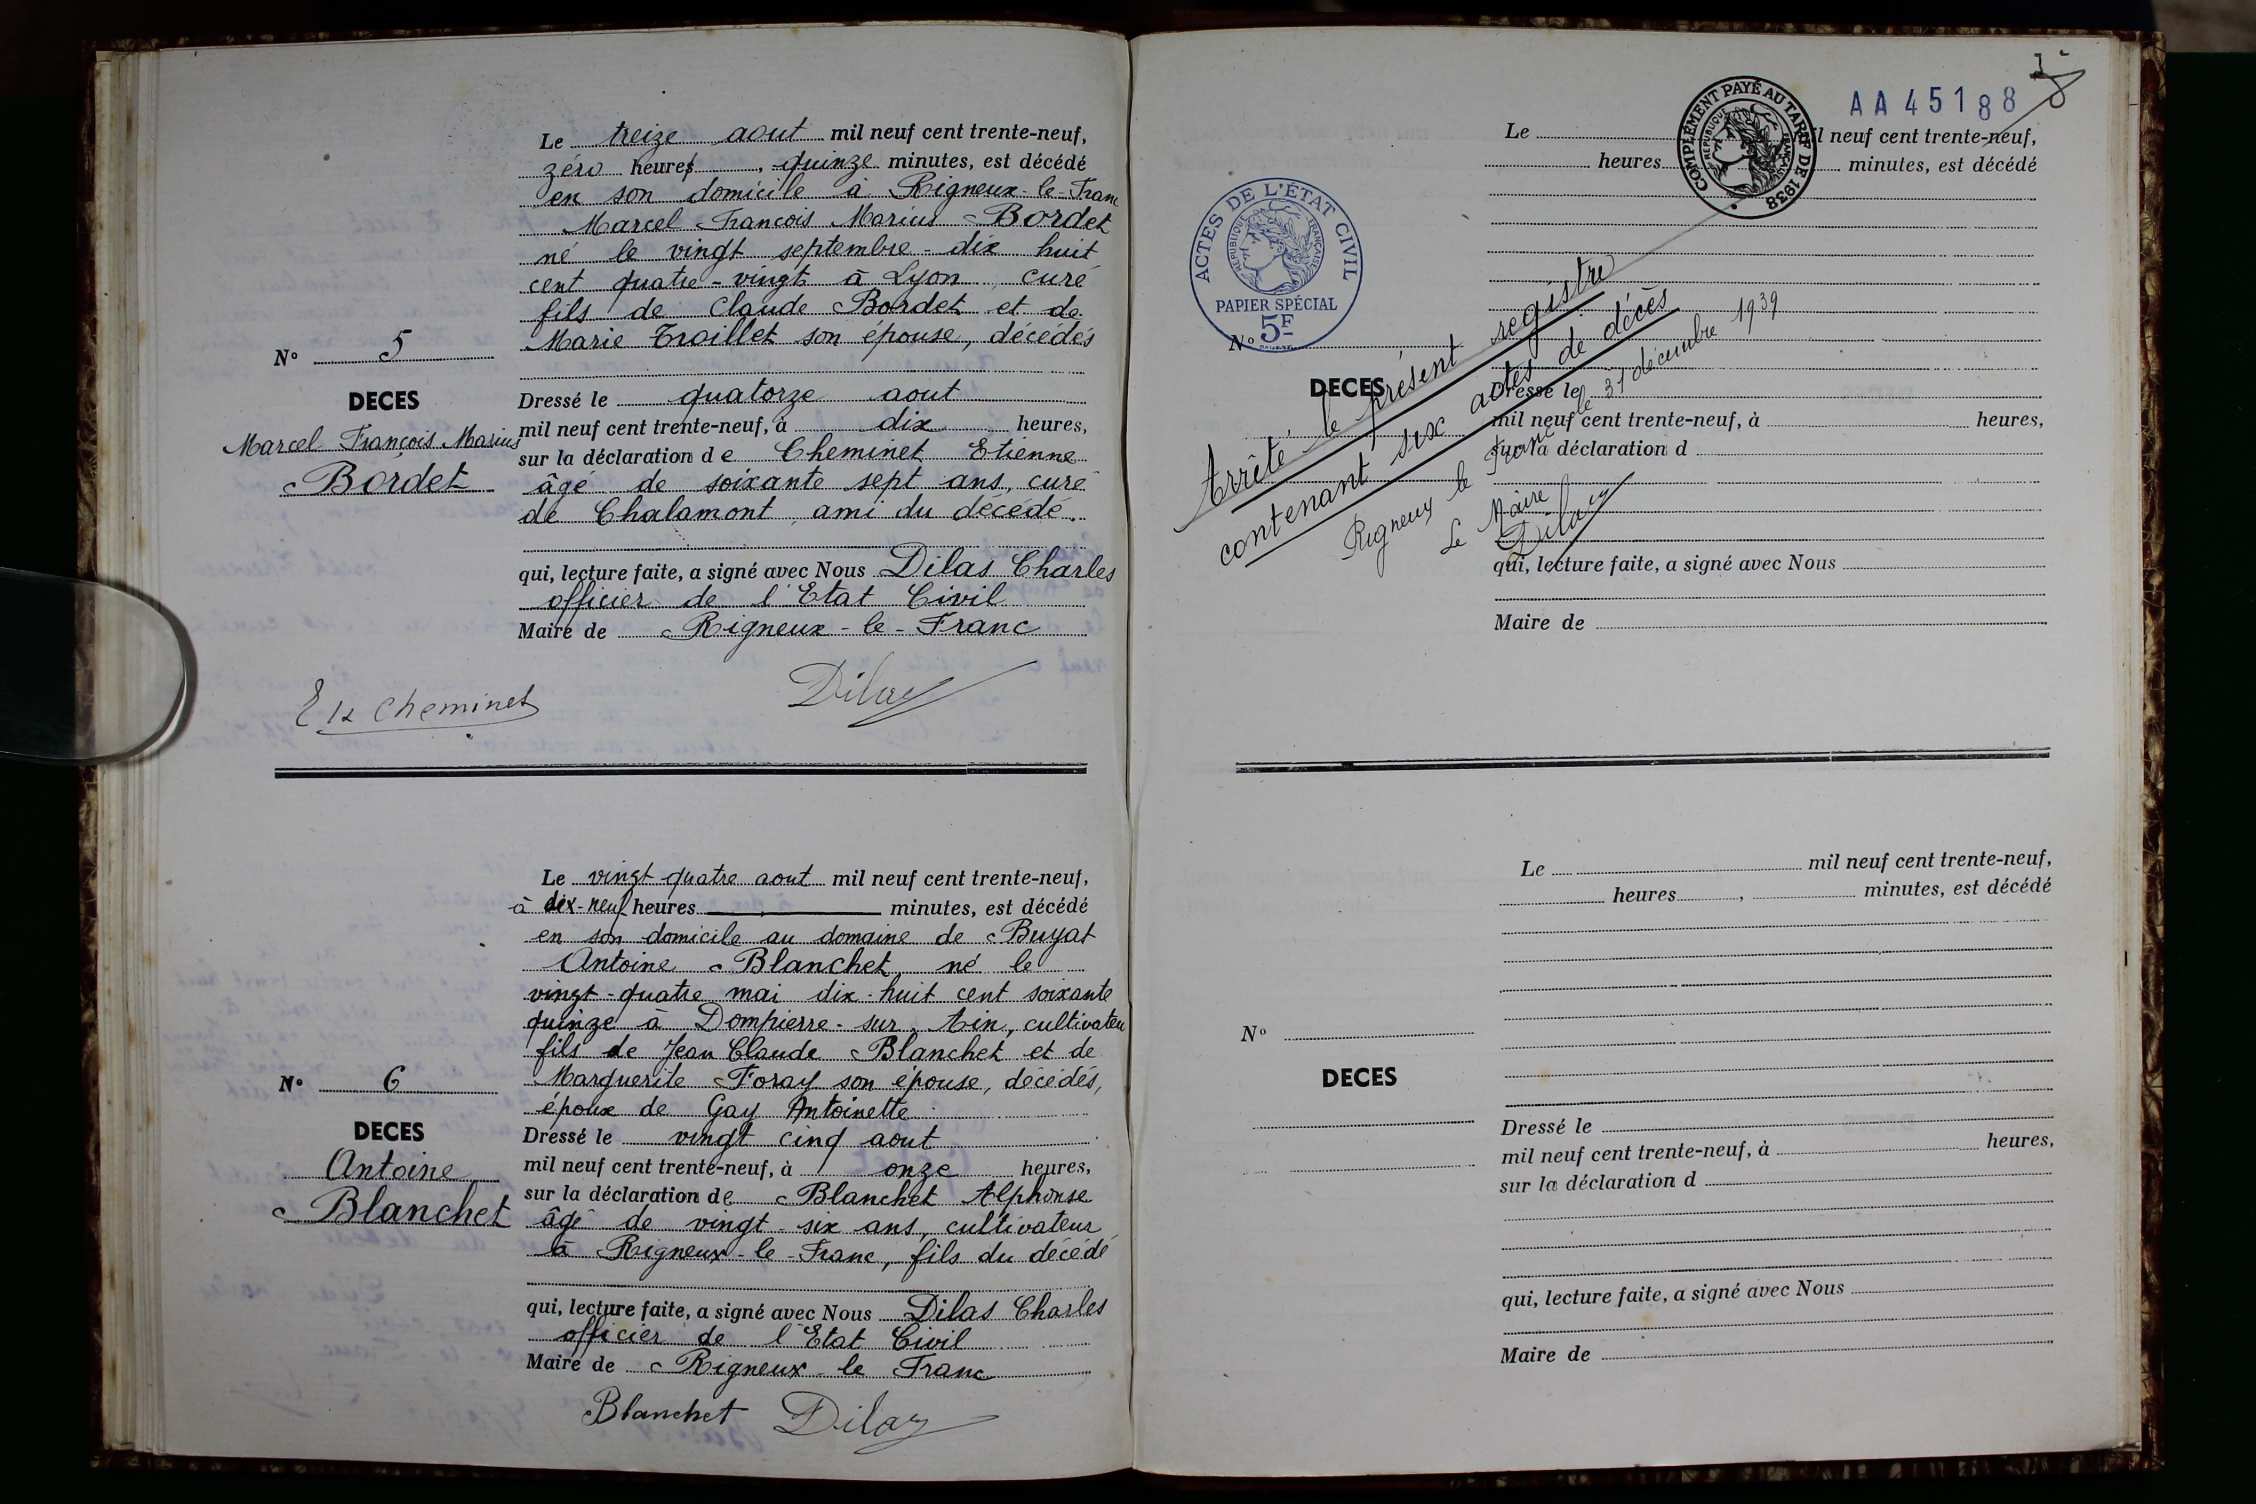 Le treize aout mil neuf cent trente-neuf,
zéro heures, quinze minutes, est décédé
en son domicile a Rigneux-le-Franc
Marcel François Marius Bordet
né le vingt septembre dix huit
cent quatre-vingt à Lyon, curé
fils de Claude Bordet et de
Marie Troillet son épouse, décédés
N° 5
DECES
Marcel François Marius
Bordet
Dressé le quatorze aout
mil neuf cent trente-neuf, à dix heures,
sur la déclaration de Cheminet Etienne
âgé de soixante sept ans, curé
de Chalamont, ami du décédé.
qui, lecture faite, a signé avec Nous Dilas Charles
officier de l'Etat Civil
Maire de Rigneux-le-Franc
Et Cheminet Dilas
Le vingt-quatre aout mil neuf cent trente-neuf,
à dix-neuf heures minutes, est décédé
en son domicile au domaine de Buyat
Antoine Blanchet, né le
vingt-quatre mai dix-huit cent soixante
quinze à Dompierre-sur-Ain, cultivateu
fils de Jean Claude Blanchet et de
Marguerite Foray son épouse, décédés,
époux de Gay Antoinette
N° 6
DECES
Antoine
Blanchet
Dressé le vingt cinq aout
mil neuf cent trente-neuf, à onze heures,
sur la déclaration de Blanchet Alphonse
âgé de vingt-six ans, cultivateur
à Rigneux-le-Franc, fils du décédé
qui, lecture faite, a signé avec Nous Dilas Charles
officier de l'Etat Civil
Maire de Rigneux-le Franc
Blanchet Dilas
AA45188
COMPLÉMENT PAYÉ AU TARIF DE 1938
RÉPUBLIQUE FRANÇAISE
Le mil neuf cent trente-neuf,
heures minutes, est décédé
ACTES DE L'ÉTAT CIVIL
RÉPUBLIQUE FRANÇAISE
PAPIER SPÉCIAL
5F
N°
DECES
Arrêté le présent registre
contenant six actes de décès
Rigneux le Franc le 31 décembre 1939
Le Maire
Dilas
Dressé le
mil neuf cent trente-neuf, à heures,
sur la déclaration d
qui, lecture faite, a signé avec Nous
Maire de
Le mil neuf cent trente-neuf,
heures, minutes, est décédé
N°
DECES
Dressé le
mil neuf cent trente-neuf, à heures,
sur la déclaration d
qui, lecture faite, a signé avec Nous
Maire de